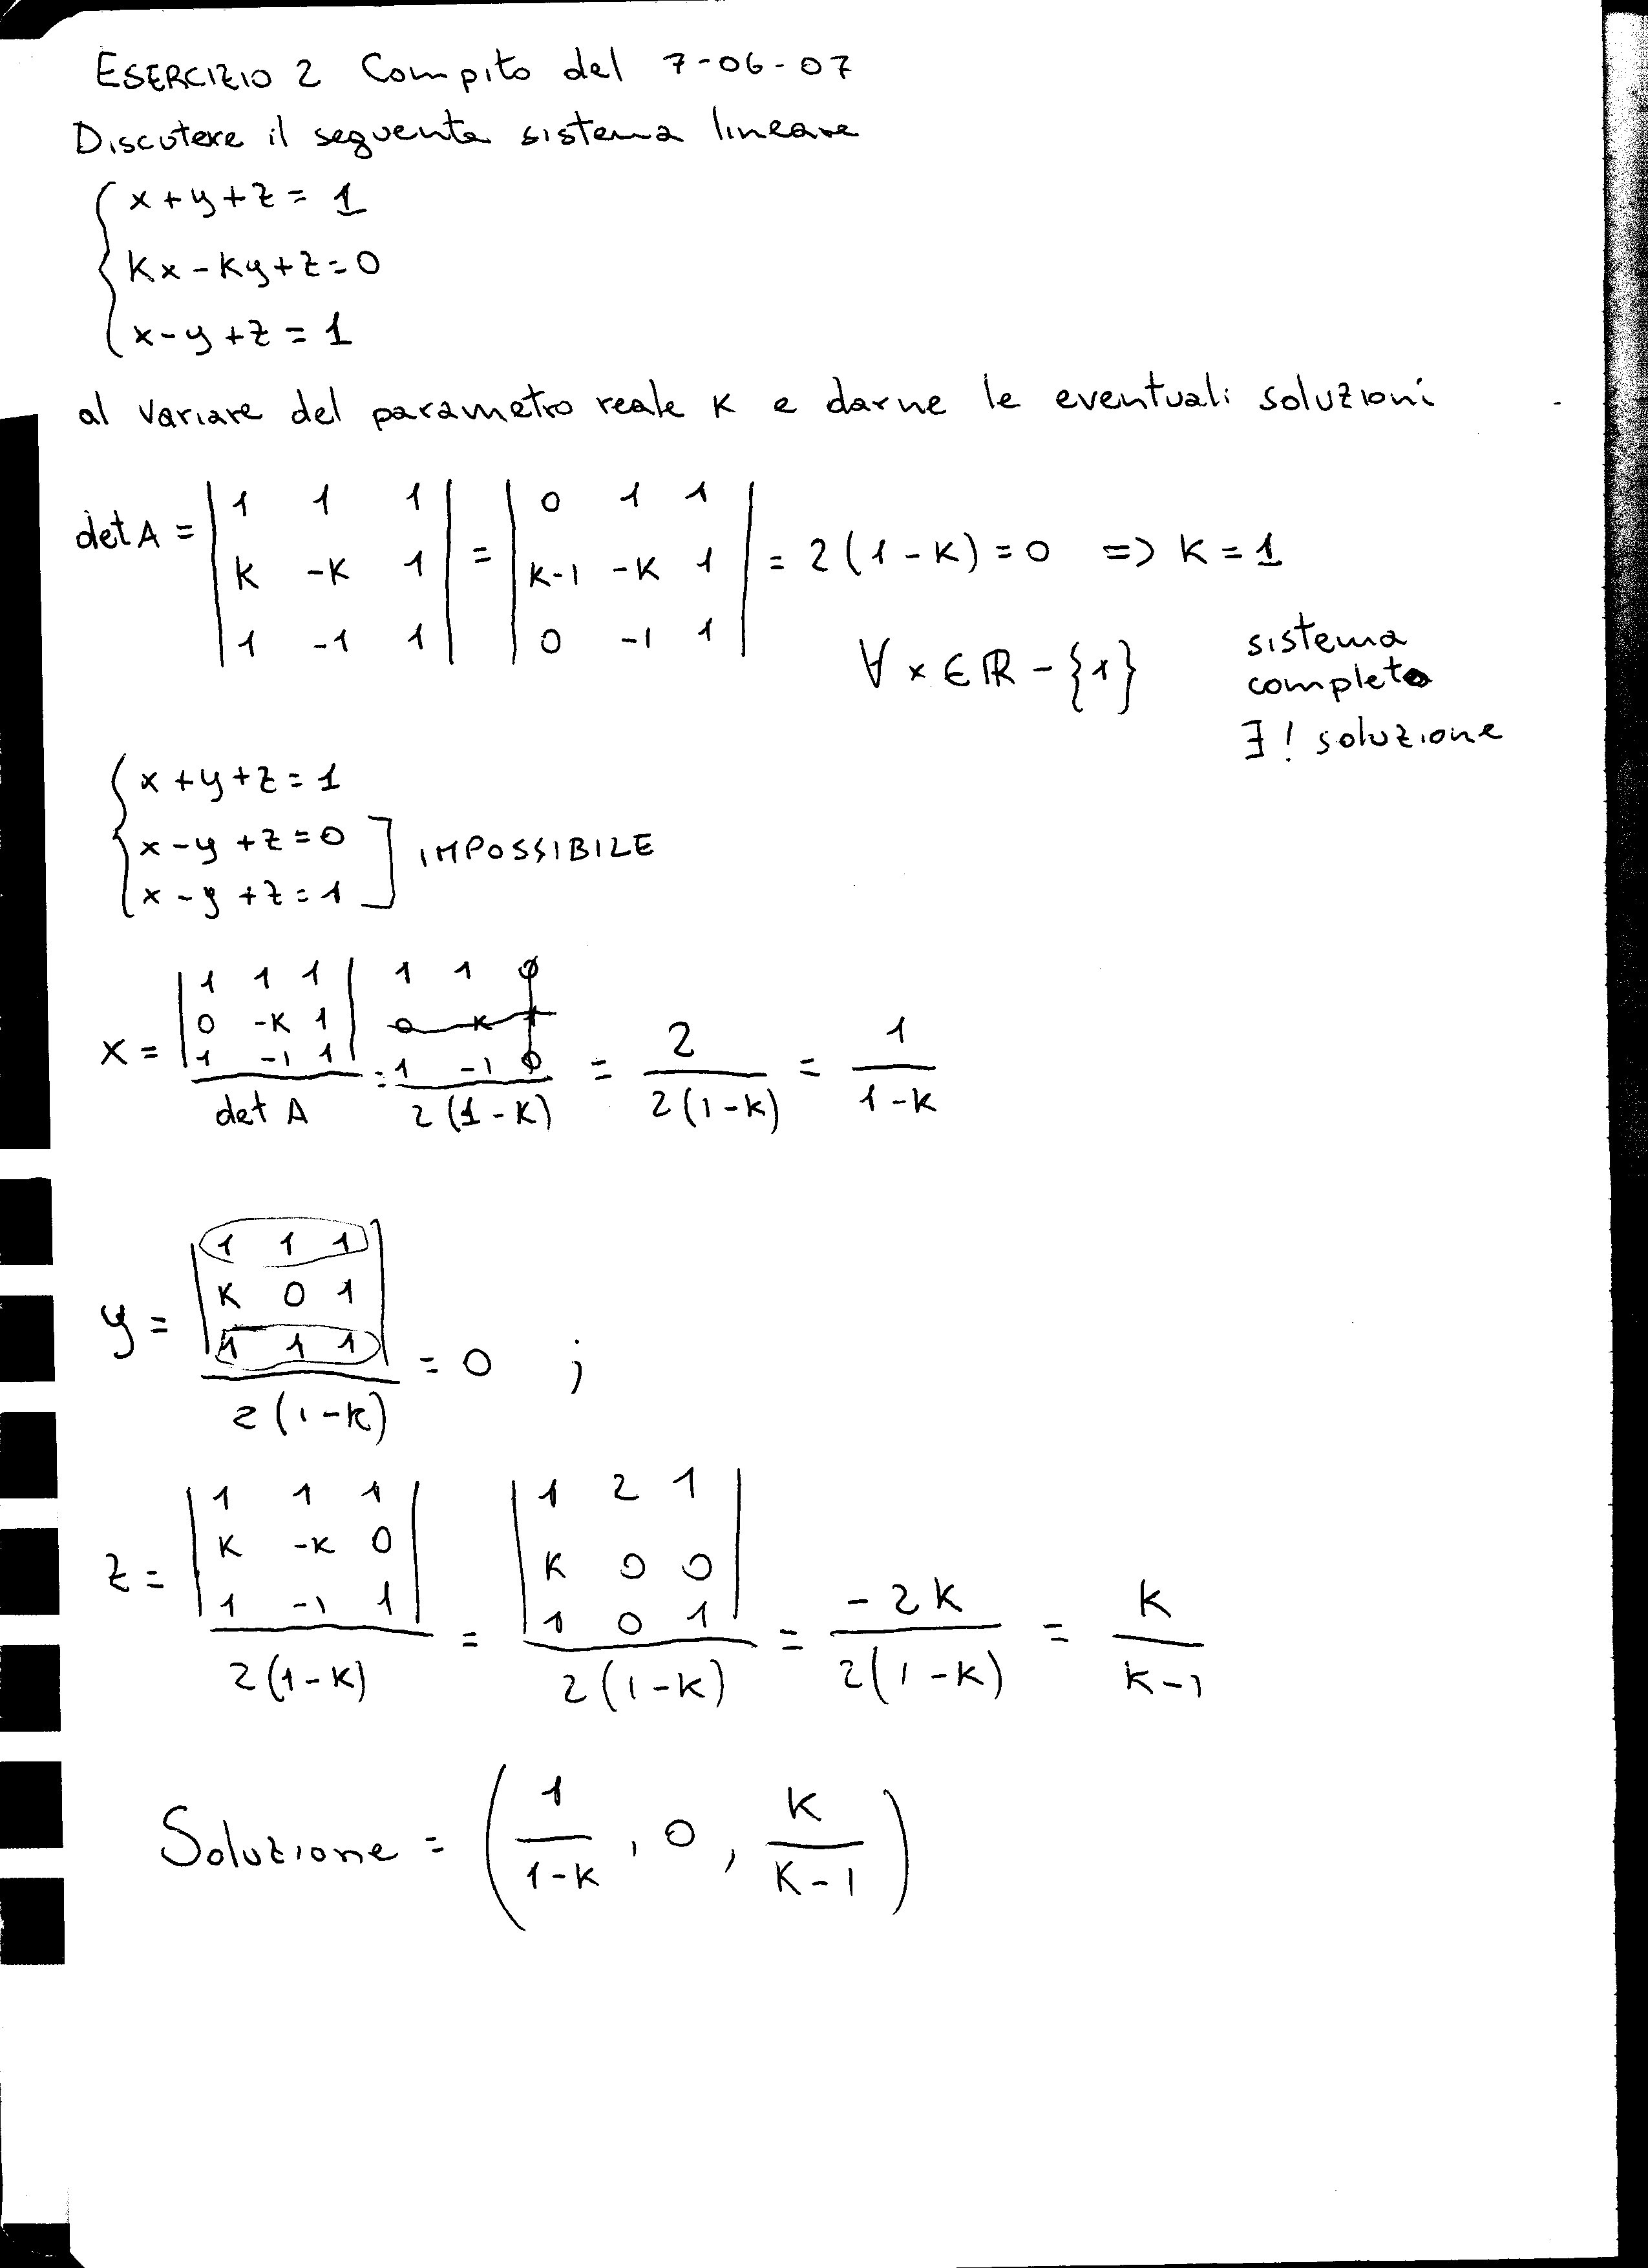 ESERCIZIO 2 Compito del 7-06-07
Discutere il seguente sistema lineare
x+y+z=1
Kx-Ky+z=0
x-y+z=1
al variare del parametro reale K e darne le eventuali soluzioni
det A = |1 1 1; K -K 1; 1 -1 1| = |0 1 1; K-1 -K 1; 0 -1 1| = 2(1-K)=0 => K=1
∀ x ∈ ℝ - {1} sistema
completo
∃! soluzione
x+y+z=1
x-y+z=0
x-y+z=1 ] IMPOSSIBILE
x = |1 1 1; 0 -K 1; 1 -1 1| / det A = 1 1 0; 0 K 1; 1 -1 0 / 2(1-K) = 2 / 2(1-K) = 1 / 1-K
y = |1 1 1; K 0 1; 1 1 1| / 2(1-K) = 0 ;
z = |1 1 1; K -K 0; 1 -1 1| / 2(1-K) = |1 2 1; K 0 0; 1 0 1| / 2(1-K) = -2K / 2(1-K) = K / K-1
Soluzione = (1 / 1-K , 0 , K / K-1)